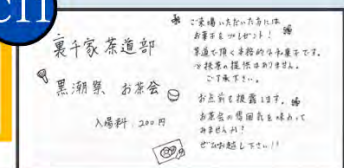 CII
裏千家茶道部
黒潮祭 お茶会
入場料 200円
ご来場いただいた方には
お菓子をプレゼント!
茶道で頂く本格的な和菓子です。
※抹茶の提供はありません。
ご了承下さい。
お点前も披露します。
お茶会の雰囲気を味わって
みませんか?
ぜひお越し下さい!!